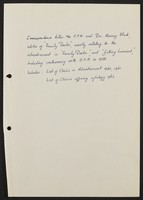 Correspondence between the F.P.A. and Dr. Harvey Flack
editor of "Family Doctor", mostly relating to the
advertisement in "Family Doctor" and "Getting Married",
Including controversy with B.M.A. in 1958.
Includes: List of Clinics in Advertisement 1960, 1961
List of Clinics offering cytology 1965